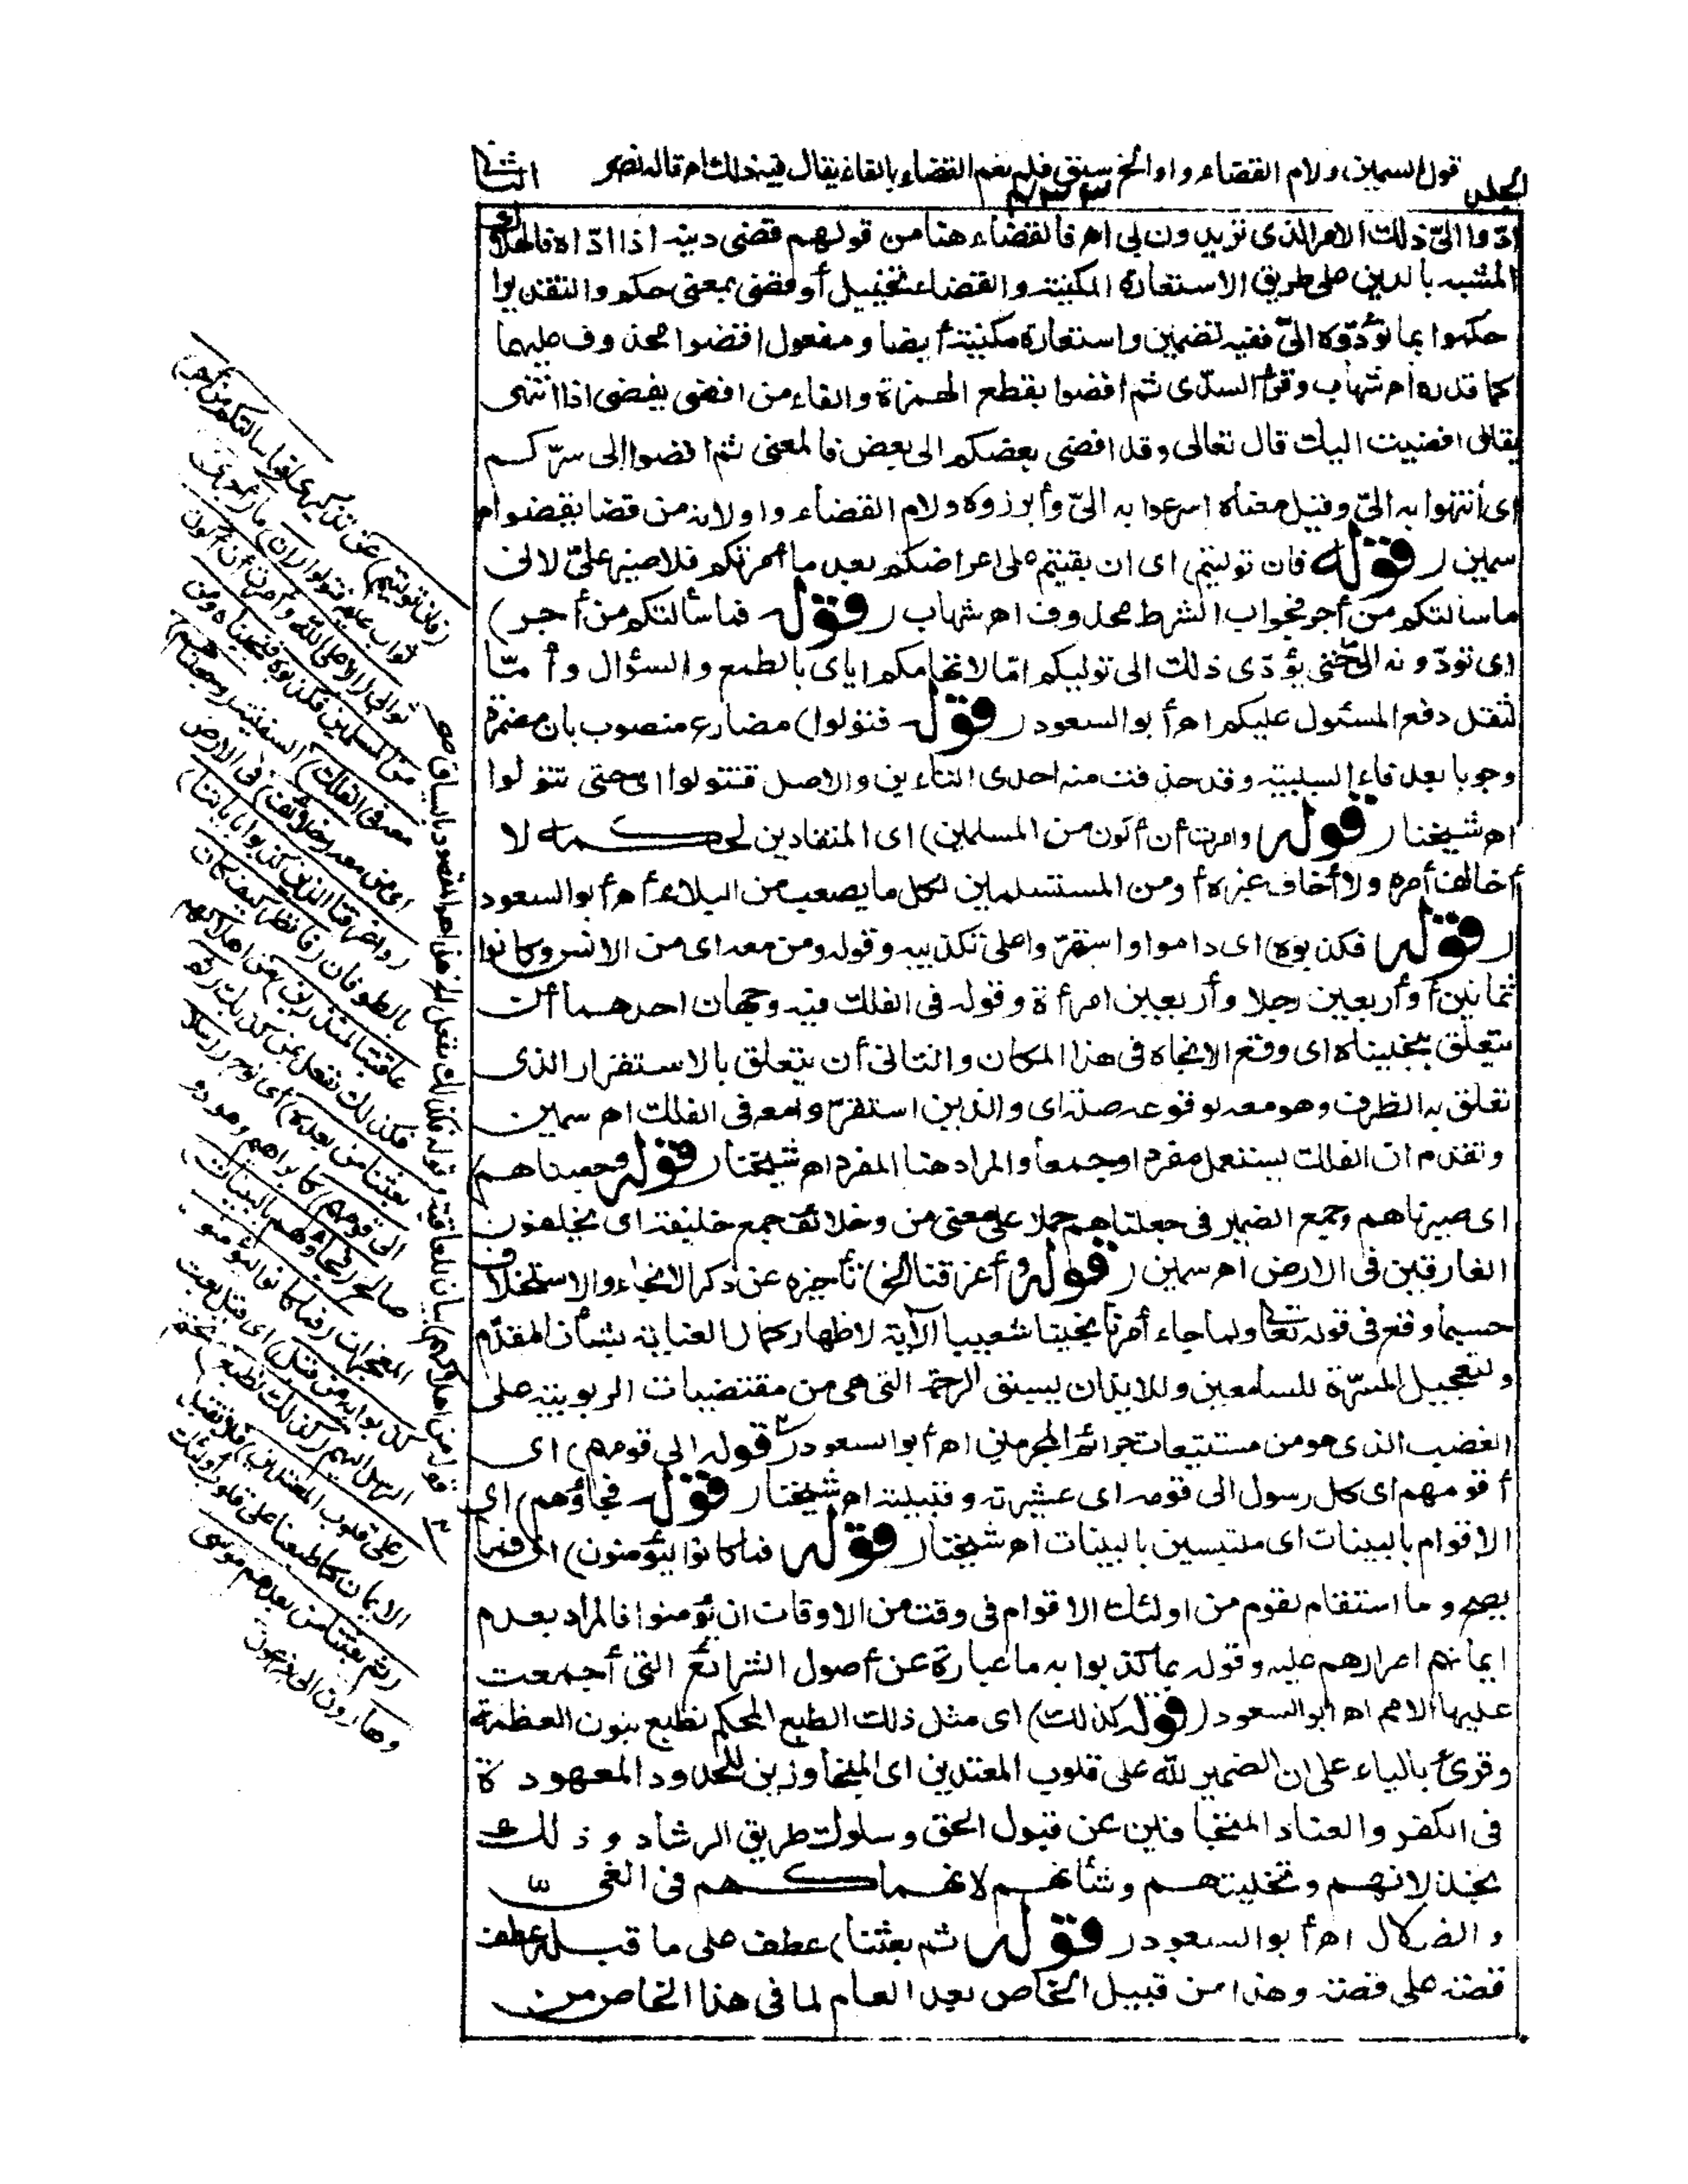 قول السمين ولام القضاء واو الخ سبق قلم نعم القضاء بالقاء يقال فيه ذلك اه قاله نصر
الثانى
الجلد
٢٣٣
ادّوا الىّ ذلك الامر الذى تريدون بى اه فالقضاء هنا من قولهم قضى دينه اذا ادّاه فالهلاك
المشبه بالدين على طريق الاستعارة المكنية والقضاء تخييل أو قضى بمعنى حكم والتقدير
حكموا بما تؤدّوه الىّ ففيه تضمين واستعارة مكنية أيضا ومفعول اقضوا محذوف عليهما
كما قدره اه شهاب وقرأ السدّى ثم افضوا بقطع الهمزة والفاء من افضى يفضى اذا انتهى
يقال افضيت اليك قال تعالى وقد افضى بعضكم الى بعض فالمعنى ثم افضوا الى سرّكم
اى أنتهوا به الىّ وقيل معناه اسرعوا به الىّ وأبرزوه ولام الفضاء واو لانه من فضا يفضو اه
سمين ( قوله فان توليتم) اى ان بقيتم على اعراضكم بعد ما أمرتكم فلا ضير علىّ لانى
ما سألتكم من أجر فجواب الشرط محذوف اه شهاب ( قوله فما سألتكم من أجر)
اى تودّونه الىّ حتى يؤدّى ذلك الى توليكم امّا لاتهامكم اياى بالطمع والسؤال وأمّا
لثقل دفع المسئول عليكم اه أبو السعود ( قوله فتولوا) مضارع منصوب بان مضمرة
وجوبا بعد فاء السببية وقد حذفت منه احدى التاءين والاصل فتتولوا اى حتى تتولوا
اه شيخنا ( قوله وامرت أن أكون من المسلمين) اى المنقادين لحكمه لا
أخالف أمره ولا أخاف غيره أو من المستسلمين لكل ما يصعب من البلاء أه أبو السعود
( قوله فكذبوه) اى داموا واستقرّوا على تكذيبه وقوله ومن معه اى من الانس وكانوا
ثمانين أو أربعين رجلا وأربعين امرأة وقوله فى الفلك فيه وجهان احدهما أن
يتعلق بنجيناه اى وقع الانجاء فى هذا المكان والثانى أن يتعلق بالاستقرار الذى
تعلق به الظرف وهو معه لوقوعه صلة اى والذين استقرّوا معه فى الفلك اه سمين
وتقدم ان الفلك يستعمل مفردا وجمعا والمراد هنا المفرد اه شيخنا ( قوله وجعلناهم)
اى صيرناهم وجمع الضمير فى جعلناهم حملا على معنى من وخلائف جمع خليفة اى يخلفون
الغارقين فى الارض اه سمين ( قوله وأغرقنا الخ) تأخيره عن ذكر الانجاء والاستخلاف
حسبما وقع فى قوله تعالى ولما جاء أمرنا نجينا شعيبا الآية لاظهار كمال العناية بشأن المقدّم
ولتعجيل المسرّة للسامعين وللايذان بسبق الرحمة التى هى من مقتضيات الربوبية على
الغضب الذى هو من مستتبعات جرائم المجرمين اه أبو السعود ( قوله الى قومهم) اى
أقومهم اى كل رسول الى قومه اى عشيرته وقبيلته اه شيخنا ( قوله فجاؤهم) اى
الاقوام بالبينات اى ملتبسين بالبينات اه شيخنا ( قوله فما كانوا ليؤمنون) اى فما
يصح وما استقام لقوم من اولئك الاقوام فى وقت من الاوقات ان يؤمنوا فالمراد بعدم
ايمانهم اصرارهم عليه وقوله بما كذبوا به ما عبارة عن أصول الشرائع التى أجمعت
عليها الامم اه ابو السعود ( قوله كذلك) اى مثل ذلك الطبع المحكم نطبع بنون العظمة
وقرئ بالياء على ان الضمير لله على قلوب المعتدين اى المتجاوزين للحدود المعهودة
فى الكفر والعناد المتجافين عن قبول الحق وسلوك طريق الرشاد وذلك
بخذلانهم وتخليتهم وشأنهم لانهماكهم فى الغى
والضلال اه أبو السعود ( قوله ثم بعثنا) عطف على ما قبله عطف
قصة على قصة وهذا من قبيل الخاص بعد العام لما فى هذا الخاص من
(فان توليتم) عن تذكيرى (فما سألتكم من أجر)
ثواب عليه فتولوا (ان) ما (أجرى)
ثوابى (الا على الله وأمرت أن أكون
من المسلمين فكذبوه فنجيناه ومن
معه فى الفلك) السفينة (وجعلناهم)
اى من معه (خلائف) فى الارض
(واغرقنا الذين كذبوا باياتنا)
بالطوفان (فانظر كيف كان
عاقبة المنذرين) من اهلاكهم
فكذلك نفعل من كذبك (ثم
بعثنا من بعده) اى نوح (رسلا
الى قومهم) كابراهيم وهود و
صالح (فجاؤهم بالبينات)
المعجزات (فما كانوا ليؤمنوا
بما كذبوا به من قبل) اى قبل بعث
الرسل اليهم (كذلك نطبع) نختم
(على قلوب المعتدين) فلا تقبل
الايمان كما طبعنا على قلوب أولئك
(ثم بعثنا من بعدهم موسى
وهارون الى فرعون